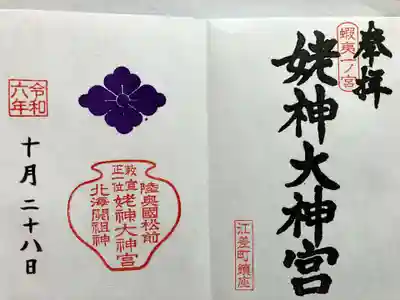 奉拝
蝦夷一ノ宮
姥神大神宮
江差町鎮座
令和六年
十月二十八日
陸奥國松前
勅宣正一位
姥神大神宮
北海開祖神